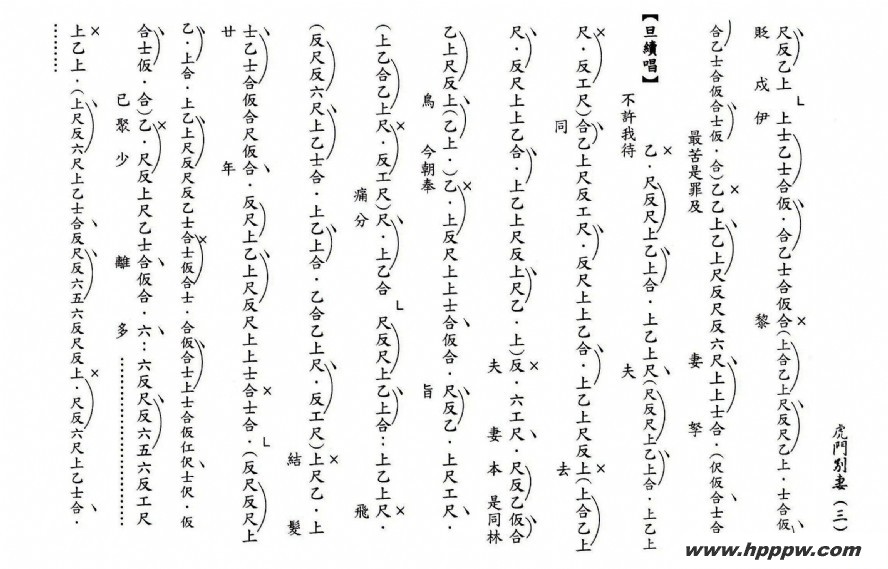 虎門別妻(三)
尺反乙上└上士乙士合仮．合乙士合仮合(上合乙上尺反尺乙上．士合仮
貶 戍 伊 黎
合乙士合仮合士仮．合)乙乙上乙上尺反尺反六尺上上士合．(伬仮合士合
最苦是罪及 妻 孥
【旦續唱】 乙．尺反尺上乙上合．上乙上尺(尺反尺上乙上合．上乙上
不許我待 夫
尺．反工尺)合乙上尺反工尺．反尺上上乙合．上乙上尺反上(上合乙上
同 去
尺．反尺上上乙合．上乙上尺反上尺乙．上)反．六工尺．尺反乙仮合
夫 妻 本 是同林
乙上尺反上(乙上．)乙．上反尺上上士合仮合．尺反乙．上尺工尺．
鳥 今朝奉 旨
(上乙合乙上尺．反工尺)尺．上乙合└尺反尺上乙上合：上乙上尺．
痛 分 飛
(反尺反六尺上乙士合．上乙上合．乙合乙上尺．反工尺)上尺乙．上
結 髮
士乙士合仮合尺仮合．反尺上乙上尺反尺上上士合士合．└(反尺反尺上
廿 年
乙．上合．上乙上尺反尺反乙士合士仮合士．合仮合士上士合仮仜伬士伬．仮
合士仮．合)乙．尺反上尺乙士合仮合．六：六反尺反六五六反工尺
已 聚 少 離 多………………
上乙上．(上尺反六尺上乙士合反尺反六五六反尺反上．尺反六尺上乙士合．
………
www.hpppw.com